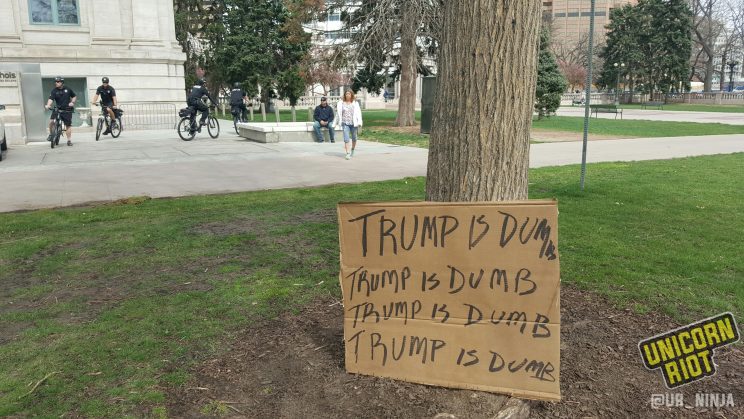 nois
TRUMP IS DUMB
TRUMP IS DUMB
TRUMP IS DUMB
TRUMP IS DUMB
UNICORN
RIOT
@UR_NINJA